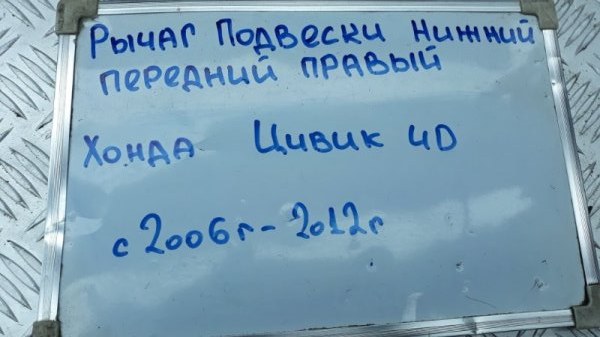 Рычаг Подвески Нижний
передний правый
Хонда Цивик 4D
с 2006г - 2012г